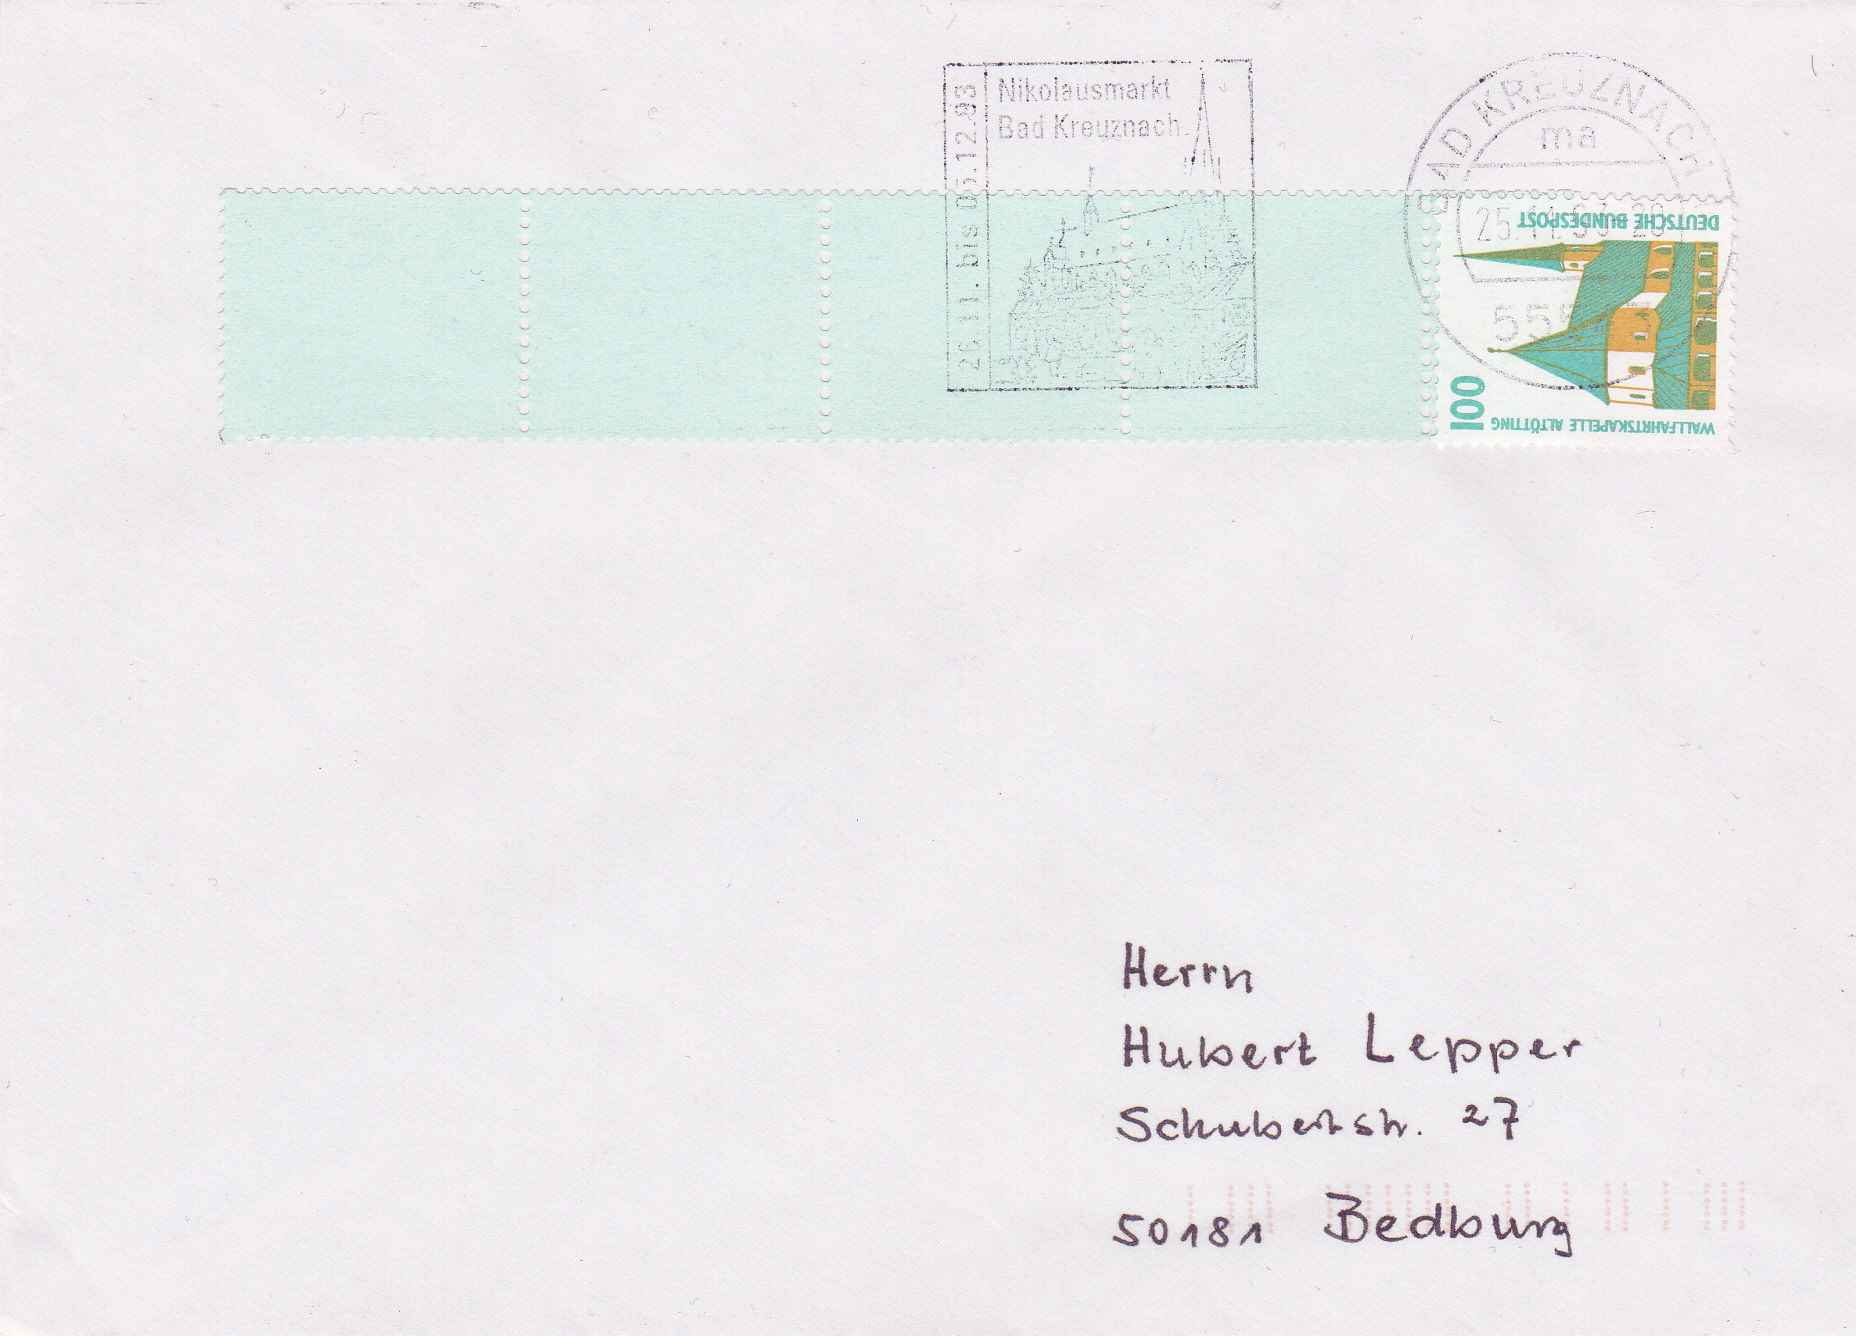 Nikolausmarkt
Bad Kreuznach
26.11. bis 05.12.93
BAD KREUZNACH
ma
25.11.93
DEUTSCHE BUNDESPOST
100
WALLFAHRTSKAPELLE ALTÖTTING
Herrn
Hubert Lepper
Schubertstr. 27
50181 Bedburg